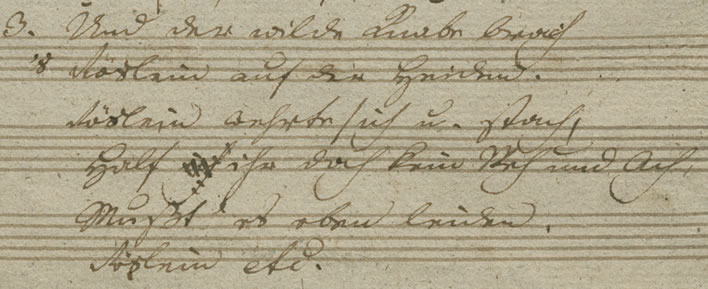 3. Und der wilde Knabe brach
's Röslein auf der Heiden.
Röslein wehrte sich u. stach,
Half ihr doch kein Weh und Ach,
Mußt' es eben leiden.
Röslein etc.